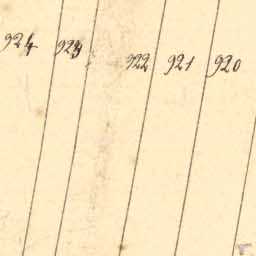 924 923 922 921 920